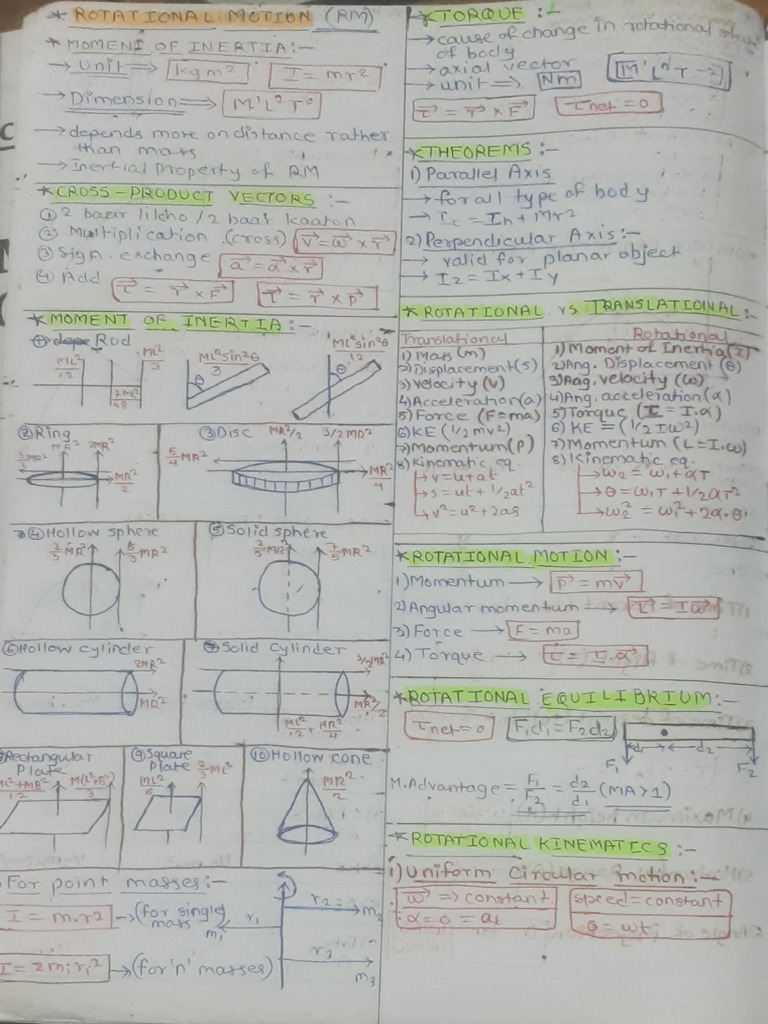 * ROTATIONAL MOTION (RM)
* MOMENT OF INERTIA:-
→ unit ⇒ kgm² I = mr²
→ Dimension ⇒ M¹L²T⁰
→ depends more on distance rather
than mass
→ Inertial property of RM
* CROSS-PRODUCT VECTORS :-
① 2 baar likho / 2 baar kaaton
② Multiplication (cross) v = ω × r
③ Sign exchange a = α × r
④ Add τ = r × F τ = r × p
* MOMENT OF INERTIA:-
① Rod
ML²/12 ML²/3 7ML²/48 ML²sin²θ/3 θ ML²sin²θ/12 θ
② Ring
2MR² MR²/2
③ Disc
MR²/2 3/2MR² 5/4 MR² MR²/4
④ Hollow sphere
2/3 MR² 5/3 MR²
⑤ Solid sphere
2/5 MR² 7/5 MR²
⑥ Hollow cylinder
2MR²
MR²
⑦ Solid cylinder
3/2MR²
MR²/2
ML²/12 + MR²/4
Rectangular
Plate
ML²+MB²/12 M(L²+B²)/3
⑨ Square
Plate 2/3 ML²
ML²/6
⑩ Hollow cone
MR²/2
For point masses:-
I = m.r² → (for single
mass
I = Σmiri² → (for 'n' masses)
m₁ r₁ r₂ m₂
r₃ m₃
* TORQUE :-
→ cause of change in rotational
of body
→ axial vector
→ unit ⇒ Nm [M¹L²T-2]
τ = r × F τnet = 0
* THEOREMS :-
1) Parallel Axis
→ for all type of body
→ Ic = In + Mr²
2) Perpendicular Axis:-
→ valid for planar object
→ Iz = Ix + Iy
* ROTATIONAL vs TRANSLATIONAL:-
Translational
1) Mass (m)
2) Displacement (s)
3) velocity (v)
4) Acceleration (a)
5) Force (F=ma)
6) KE (1/2 mv²)
7) Momentum (P)
8) Kinematic eq.
→ v = u + at
→ s = ut + 1/2at²
→ v² = u² + 2as
Rotational
1) Moment of Inertia (I)
2) Ang. Displacement (θ)
3) Ang. velocity (ω)
4) Ang. acceleration (α)
5) Torque (τ = I.α)
6) KE = (1/2 Iω²)
7) Momentum (L = I.ω)
8) Kinematic eq.
→ ω₂ = ω₁ + αT
→ θ = ω₁T + 1/2αT²
→ ω₂² = ω₁² + 2α.θ
* ROTATIONAL MOTION :-
1) Momentum → P = mv
2) Angular momentum → L = Iω
3) Force → F = ma
4) Torque → τ = I.α
* ROTATIONAL EQUILIBRIUM:-
τnet = 0 F₁d₁ = F₂d₂
d₁ d₂
F₁ F₂
M.Advantage = F₁/F₂ = d₂/d₁ (MA>1)
* ROTATIONAL KINEMATICS :-
1) Uniform circular motion:-
ω ⇒ constant speed = constant
α = 0 = at θ = ωt